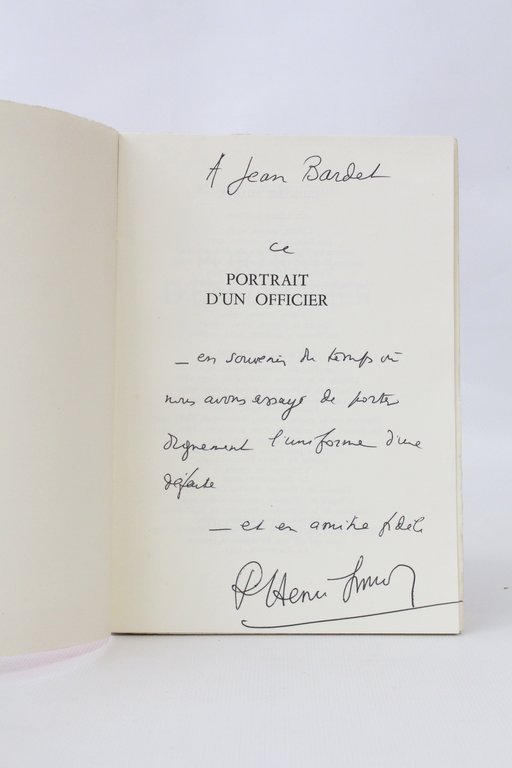 A Jean Bardet
ce
PORTRAIT
D'UN OFFICIER
— en souvenir du temps où
nous avons essayé de porter
dignement l'uniforme d'une
défaite
— et en amitié fidèle
P Henri Simon